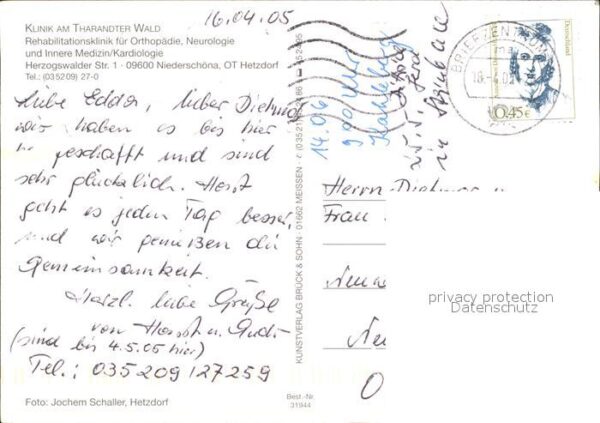 16.04.05
KLINIK AM THARANDTER WALD
Rehabilitationsklinik für Orthopädie, Neurologie
und Innere Medizin/Kardiologie
Herzogswalder Str. 1 · 09600 Niederschöna, OT Hetzdorf
Tel.: (03 52 09) 27-0
Liebe Edda, lieber Dietmar
wir haben es bis hier
geschafft und sind
sehr glücklich. Horst
geht es jeden Tag besser,
und wir genießen die
Gemeinsamkeit.
Herzl. liebe Grüße
von Horst u. Gudr
(sind bis 4.5.05 hier)
Tel.: 035209 127259
Foto: Jochem Schaller, Hetzdorf
Best.-Nr.
31944
KUNSTVERLAG BRÜCK & SOHN · 01662 MEISSEN
14.06
9.00 Uhr
in
BRIEFZENTRUM
Deutschland
0,45€
Herrn Dietmar u
Frau
Neu
privacy protection
Datenschutz